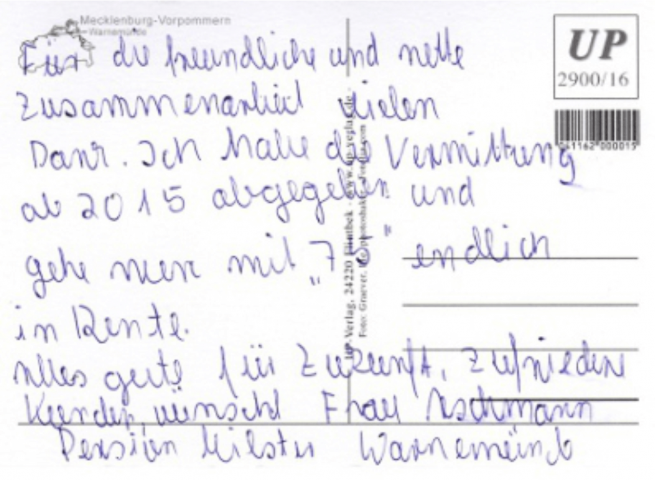 Mecklenburg-Vorpommern
Warnemünde
UP
2900/16
Für die freundliche und nette
Zusammenarbeit vielen
Dank. Ich habe die Vermittlung
ab 2015 abgegeben und
gehe nun mit „75" endlich
in Rente.
Alles gute für Zukunft, zufriedene
Kunden wünscht Frau
Pension Warnemünde
UP Verlag, 24220 Flintbek